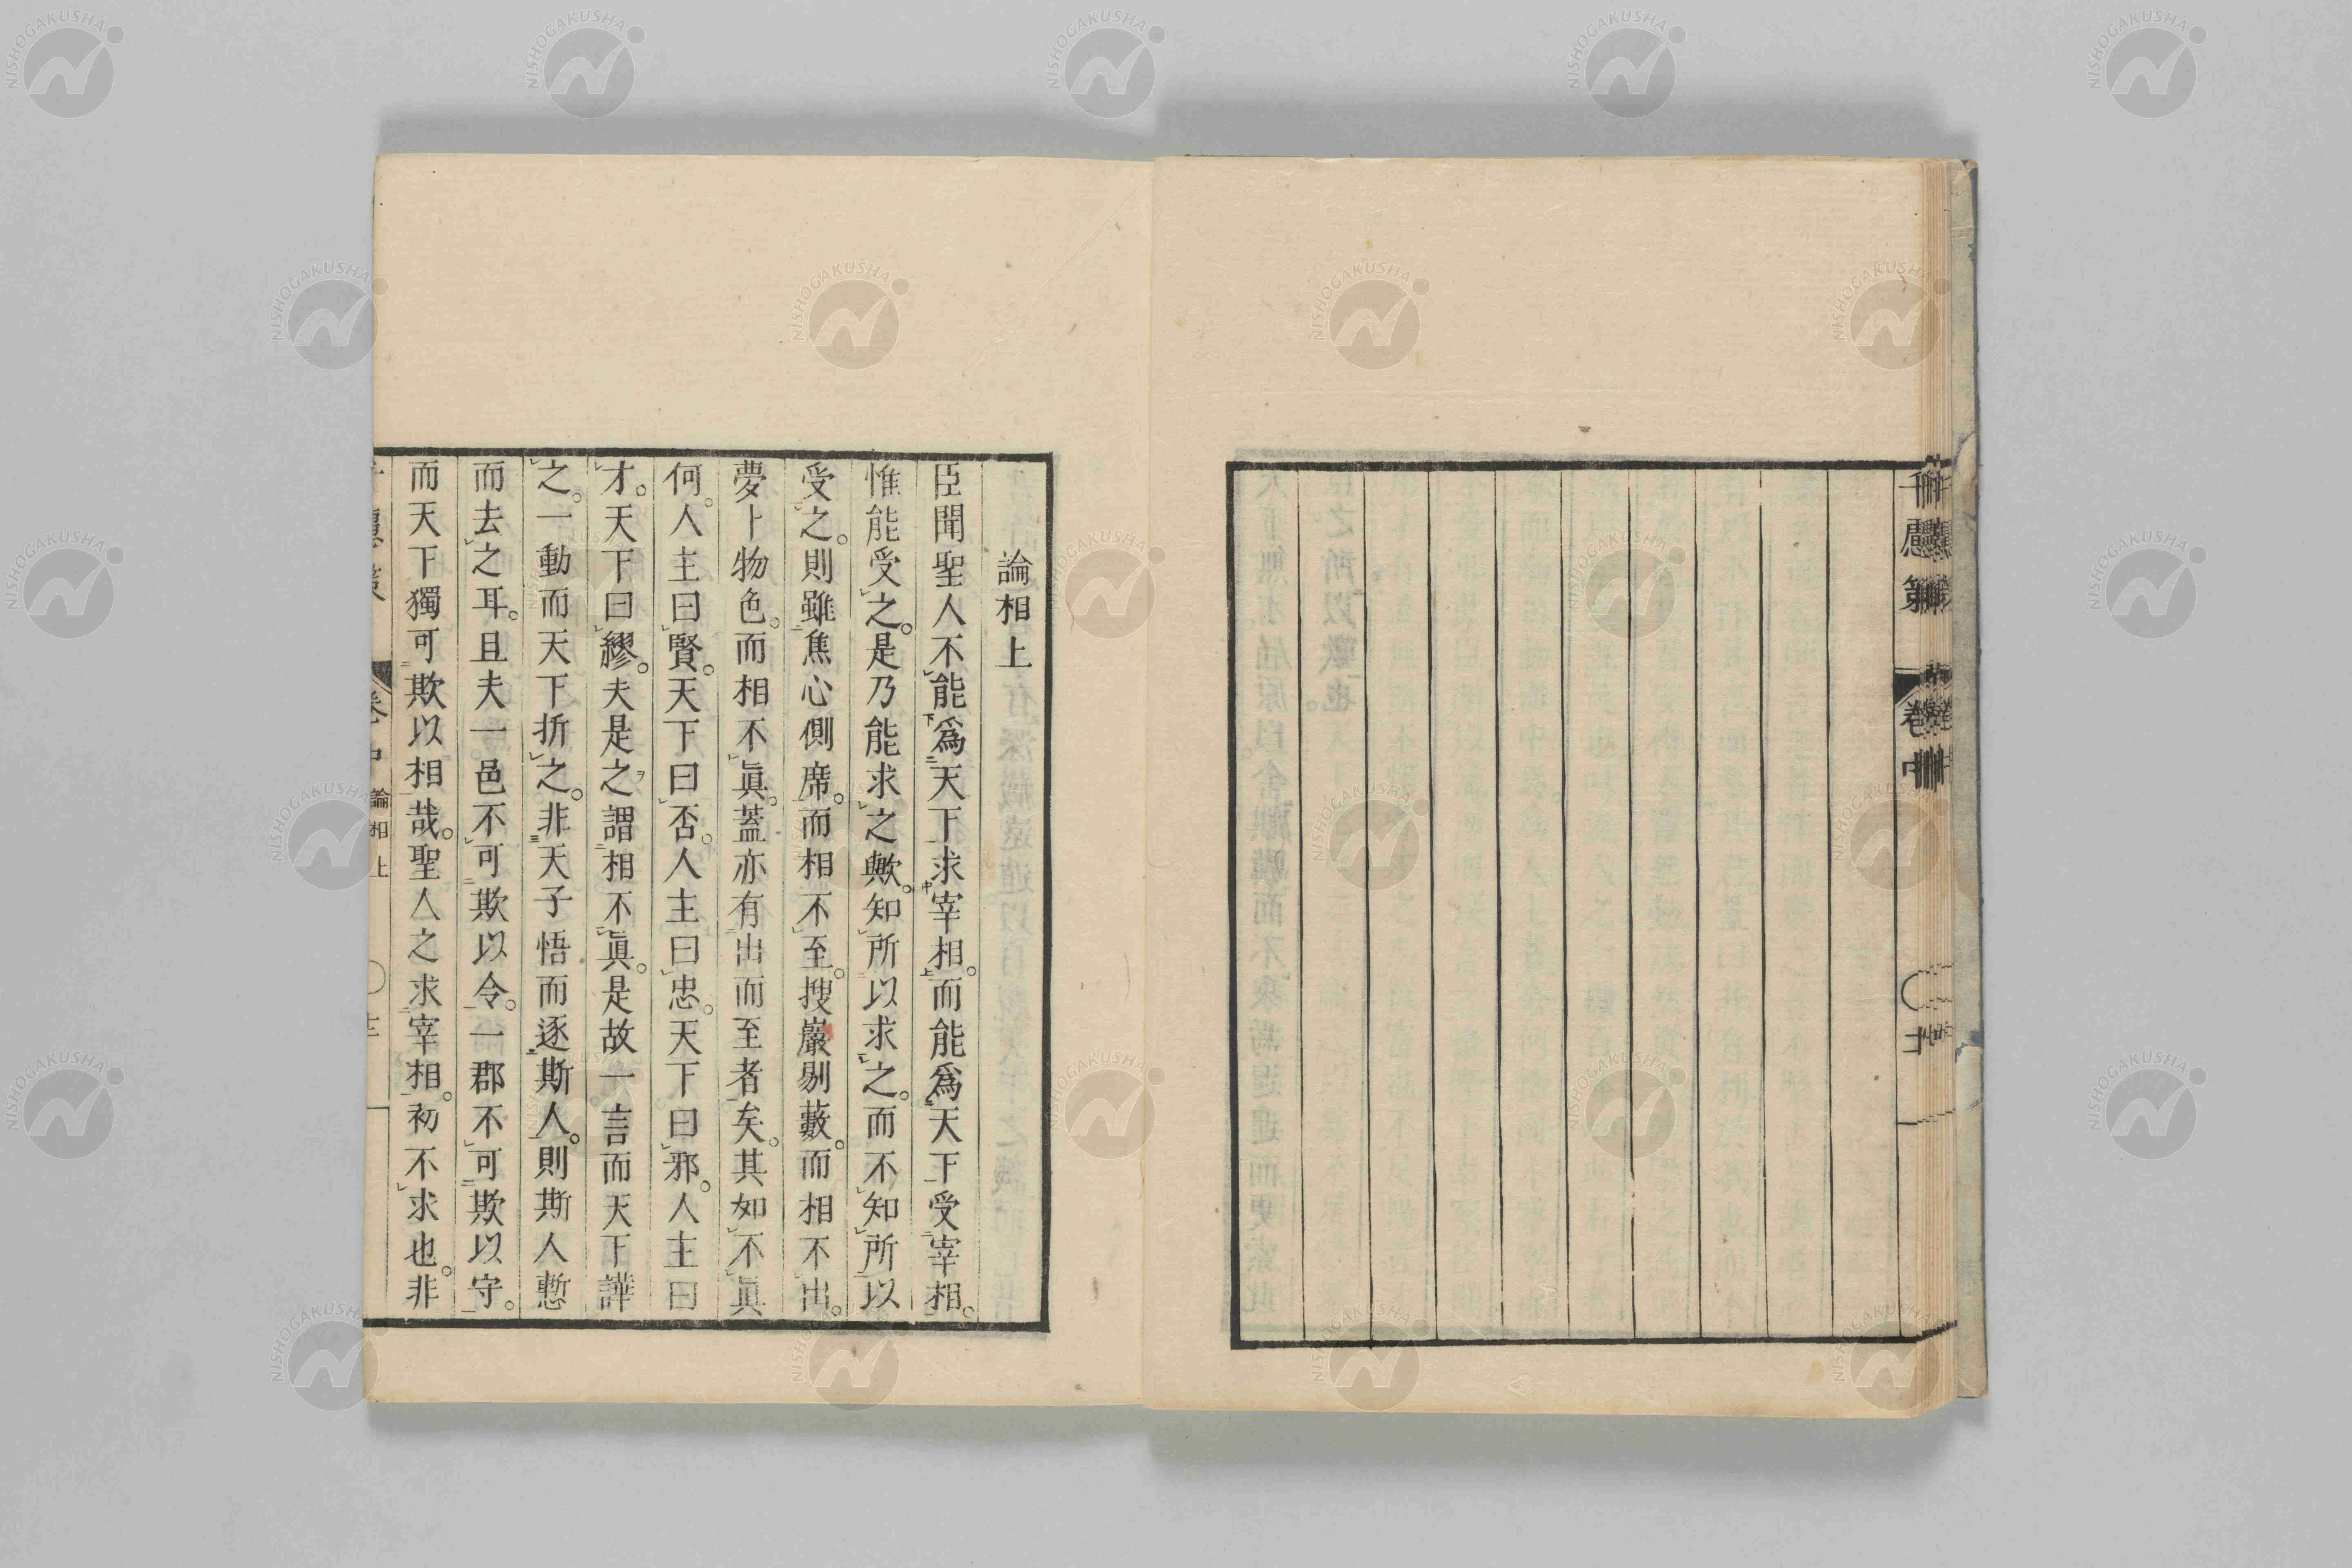 千慮策
卷中
十二
論相上
臣聞聖人不能爲天下求宰相。而能爲天下受宰相。
惟能受之。是乃能求之歟。知所以求之。而不知所以
受之。則雖焦心側席。而相不至。搜巖剔藪。而相不出。
夢卜物色。而相不眞。蓋亦有出而至者矣。其如不眞
何。人主曰賢。天下曰否。人主曰忠。天下曰邪。人主曰
才。天下曰繆。夫是之謂相不眞。是故一言而天下譁
之。一動而天下折之。非天子悟而逐斯人。則斯人慙
而去之耳。且夫一邑不可欺以令。一郡不可欺以守。
而天下獨可欺以相哉。聖人之求宰相。初不求也。非
卷中 論相上
NISHOGAKUSHA